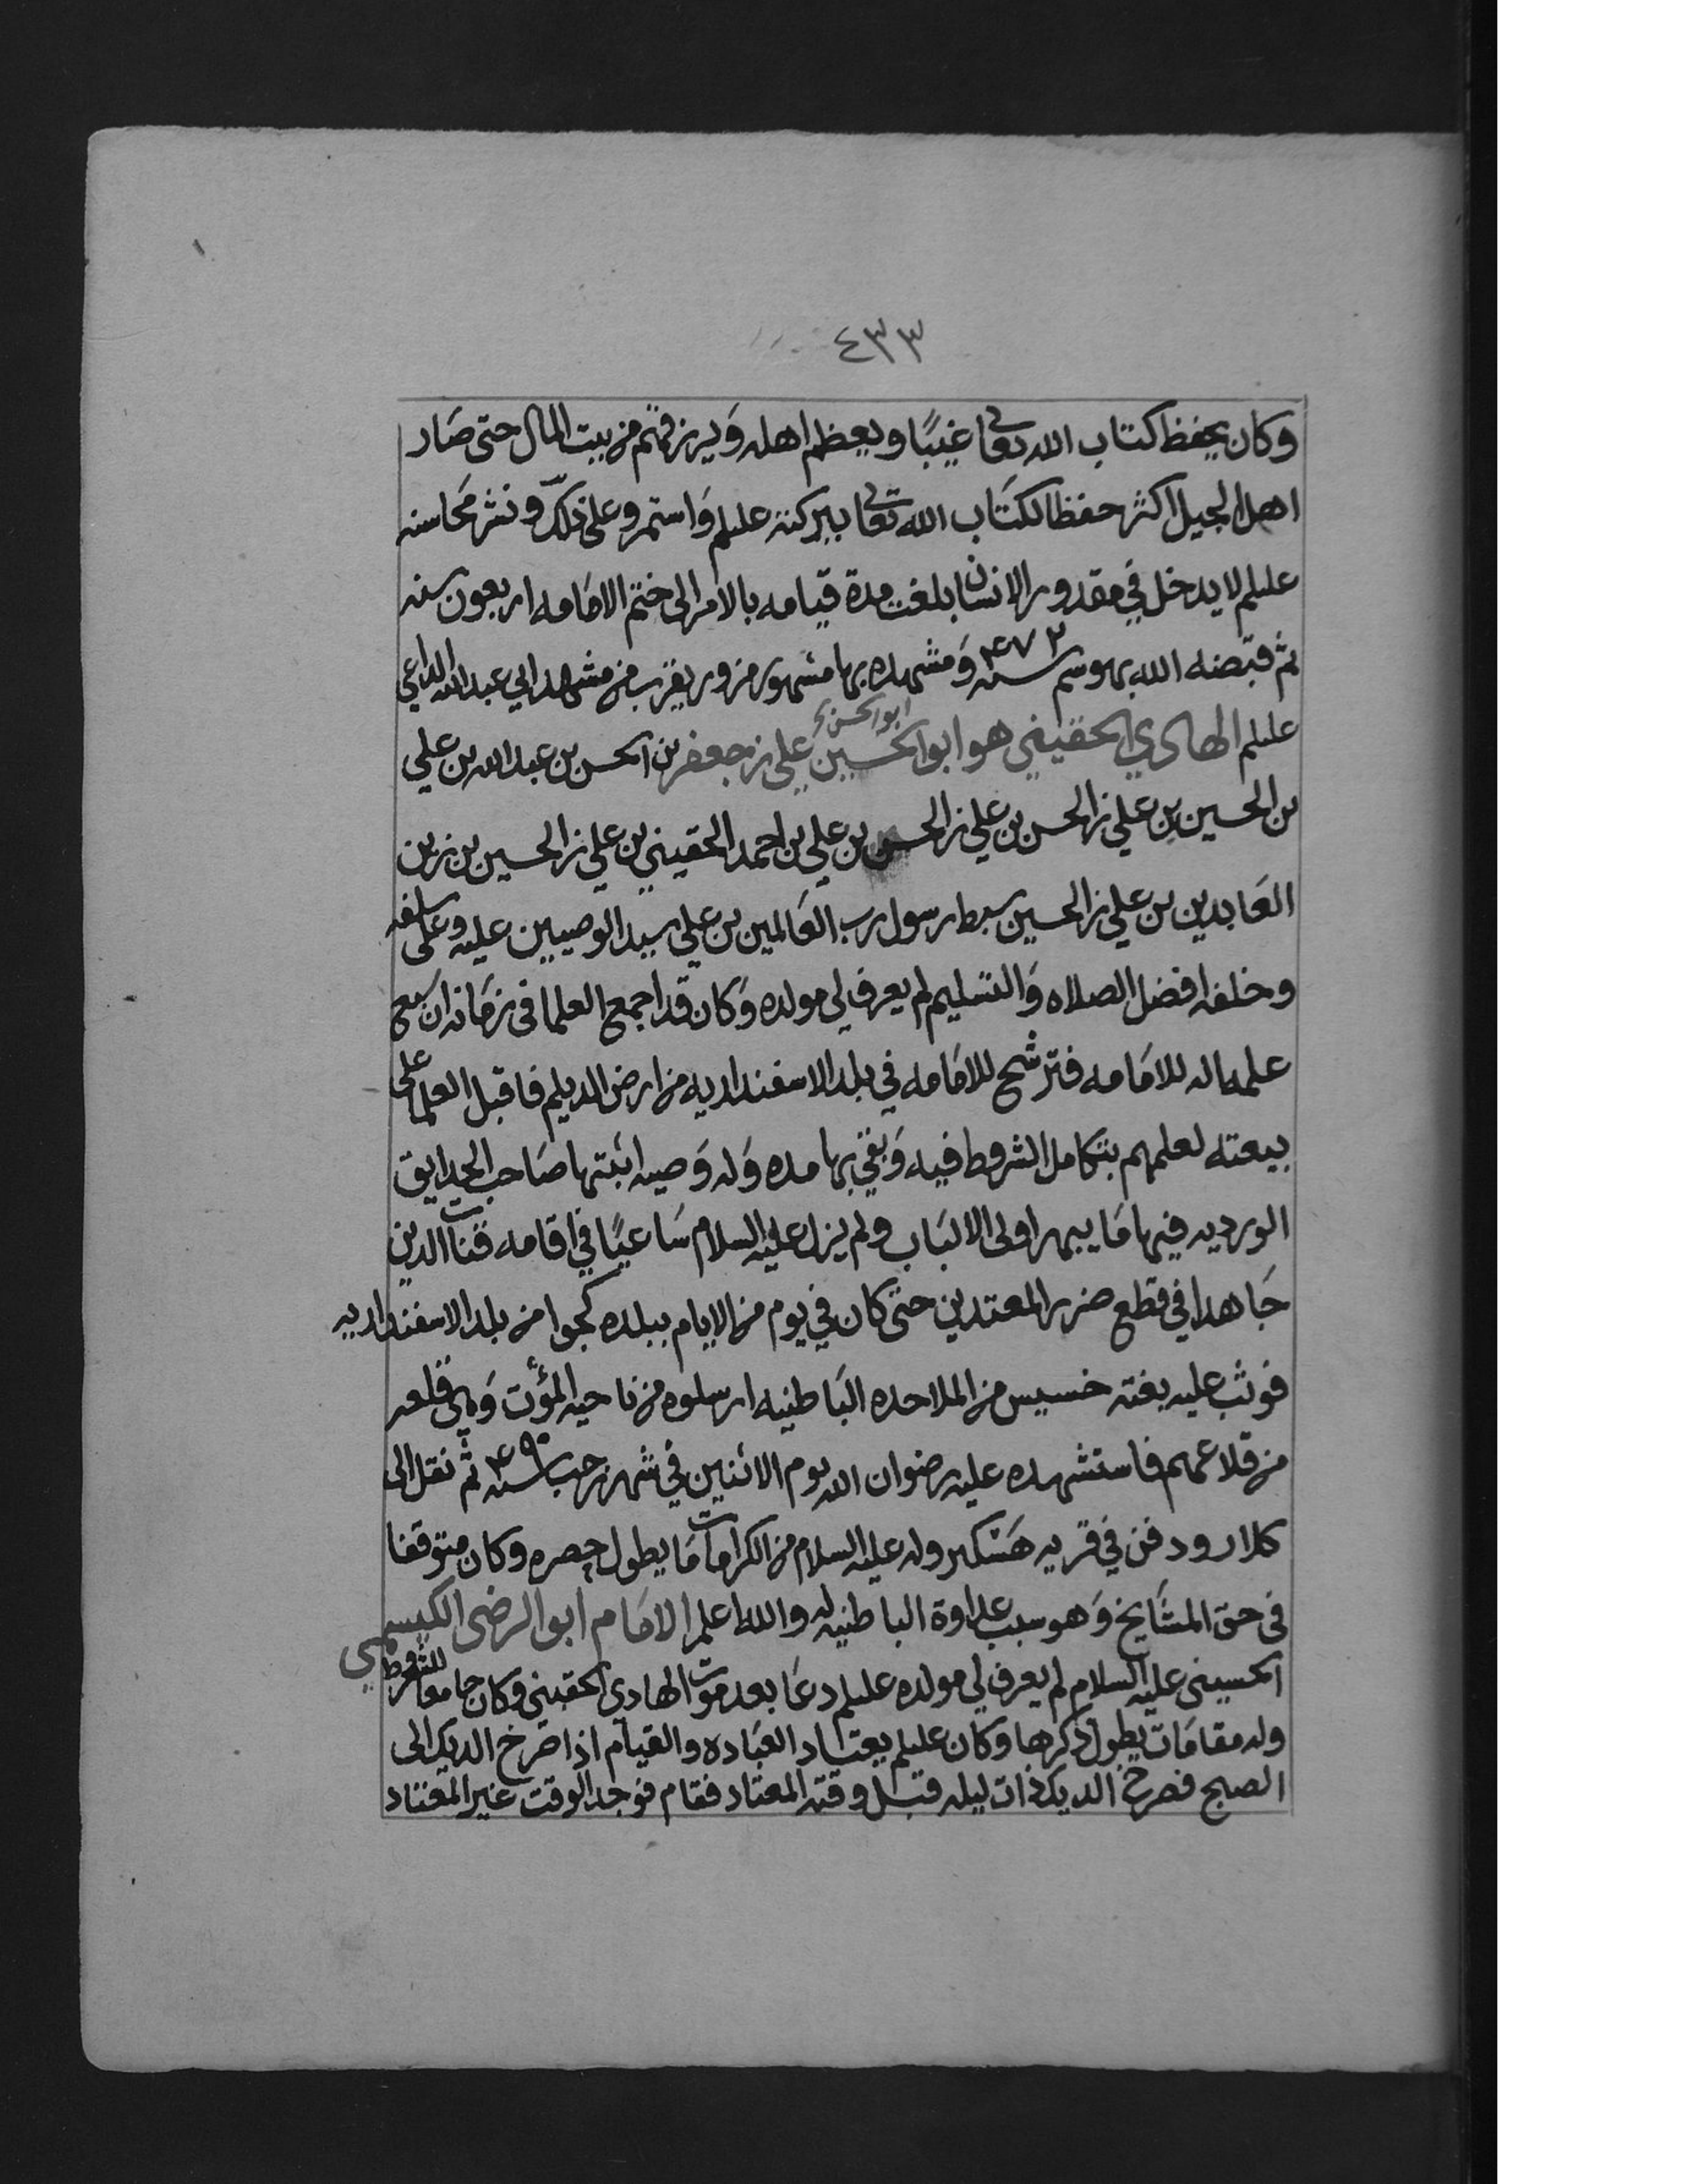 ٤٣٣
وكان يحفظ كتاب الله تعالى غيبًا ويعظم اهله ويرزقهم من بيت المال حتى صَار
اهل الجيل اكثر حفظا لكتَاب الله تعالى ببركته عليلم وَاستمروعلى ذلك ونشر مَحاسنه
عليلم لا يدخل في مقدور الانسان بلغت مدة قيامه بالامر الى ختم الامَامه اربعون سنه
ثم قبضه الله بهوسم سنه ٤٧٢ وَمشهده بها مشهور مزور بقرب من مشهد ابي عبد الله الداعي
عليلم الهادي الحقيني هو ابو الحسين ابو الحسن علي بن جعفر بن الحسن بن عبد الله بن علي
بن الحسين بن علي بن الحسن بن علي بن الحسن بن علي بن احمد الحقيني بن علي بن الحسين بن زين
العَابدين بن علي بن الحسين سبط رسول رب العَالمين بن علي سيد الوصيين عليه وعلى سلفه
وخلفه افضل الصلاه وَالتسليم لم يعرف لي مولده وَكان قد اجمع العلما في زمَانه ان سبع
علمه اله للامَامه فترشح للامَامه في بلد الاسفنداديه من ارض الديلم فاقبل العلما على
بيعته لعلمهم بتكامل الشروط فيه وَبقي بها مده وَله وَصيه اثبتها صَاحب الحدايق
الورديه فيها مَا يبهر اولى الالبَاب ولم يزل عليه السلام سَاعيًا في اقامه قنات الدين
جَاهدا في قطع ضرر المعتدين حتى كان في يوم من الايام ببلده كجوا من بلد الاسفنداديه
فوثب عليه بغته خسيس من الملاحده البَاطنيه ارسلوه من ناحيه المؤت وَهى قلعه
من قلاعهم فاستشهده عليه رضوان الله يوم الاثنين في شهر رجب سنه ٤٩٠ ثم نقل الى
كلارودفن في قريه هَسَكير وله عليه السلام من الكرامات مَا يطول حصره وكان متوقفا
في حق المشَايخ وَهو سبب عداوة الباطنيه له والله اعلم الامَام ابو الرضى الكيسمي
الحسيني عليه السلام لم يعرف لي مولده عليلم دعَا بعد موت الهادي الحقيني وكان جامعا للشروط
وله مقامَات يطول ذكرها وكان عليلم يعتاد العبَاده والقيام اذا صَرخ الديك الى
الصبح فصرخ الديك ذات ليله قبل وقته المعتاد فقام فوجد الوقت غير المعتاد